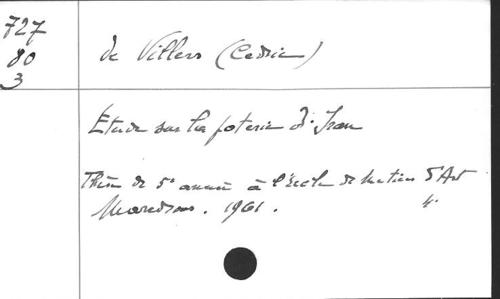 727
80
3
de Villers (Cedric)
Etude sur la poterie d'Iran
Thèse de 5e année à l'école de Métiers d'Art
Maredsous. 1961.